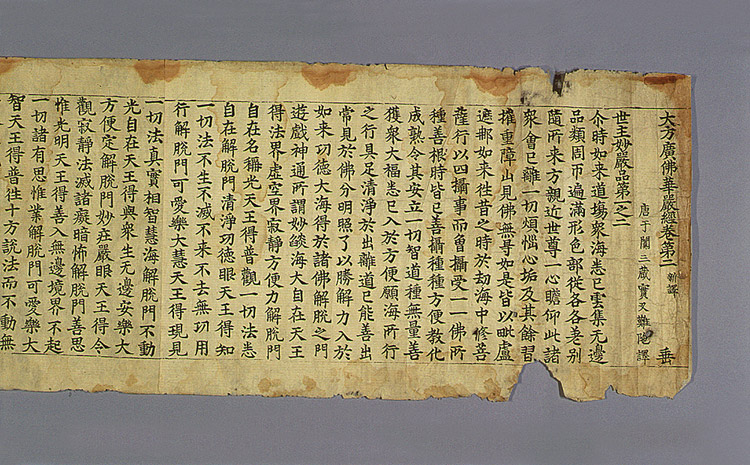 大方廣佛華嚴經卷第二 新譯 垂
唐于闐三藏實叉難陁譯
世主妙嚴品第一之二
尒時如來道場衆海悉已雲集无邊
品類周帀遍滿形色部從各各差别
隨所來方親近世尊一心瞻仰此諸
衆會已離一切煩惱心垢及其餘習
摧重障山見佛無㝵如是皆以毗盧
遮那如來往昔之時於劫海中修菩
薩行以四攝事而曽攝受一一佛所
種善根時皆已善攝種種方便教化
成熟令其安立一切智道種無量善
獲衆大福悉已入於方便願海所行
之行具足清淨於出離道已能善出
常見於佛分明照了以勝解力入於
如來功德大海得於諸佛解脫之門
遊戲神通所謂妙燄海大自在天王
得法界虛空界寂靜方便力解脫門
自在名稱光天王得普觀一切法悉
自在解脫門清淨功德眼天王得知
一切法不生不滅不來不去無功用
行解脫門可愛樂大慧天王得現見
一切法真實相智慧海解脫門不動
光自在天王得與衆生无邊安樂大
方便定解脫門妙莊嚴眼天王得令
觀寂靜法滅諸癡暗怖解脫門善思
惟光明天王得善入無邊境界不起
一切諸有思惟業解脫門可愛樂大
智天王得普往十方說法而不動無